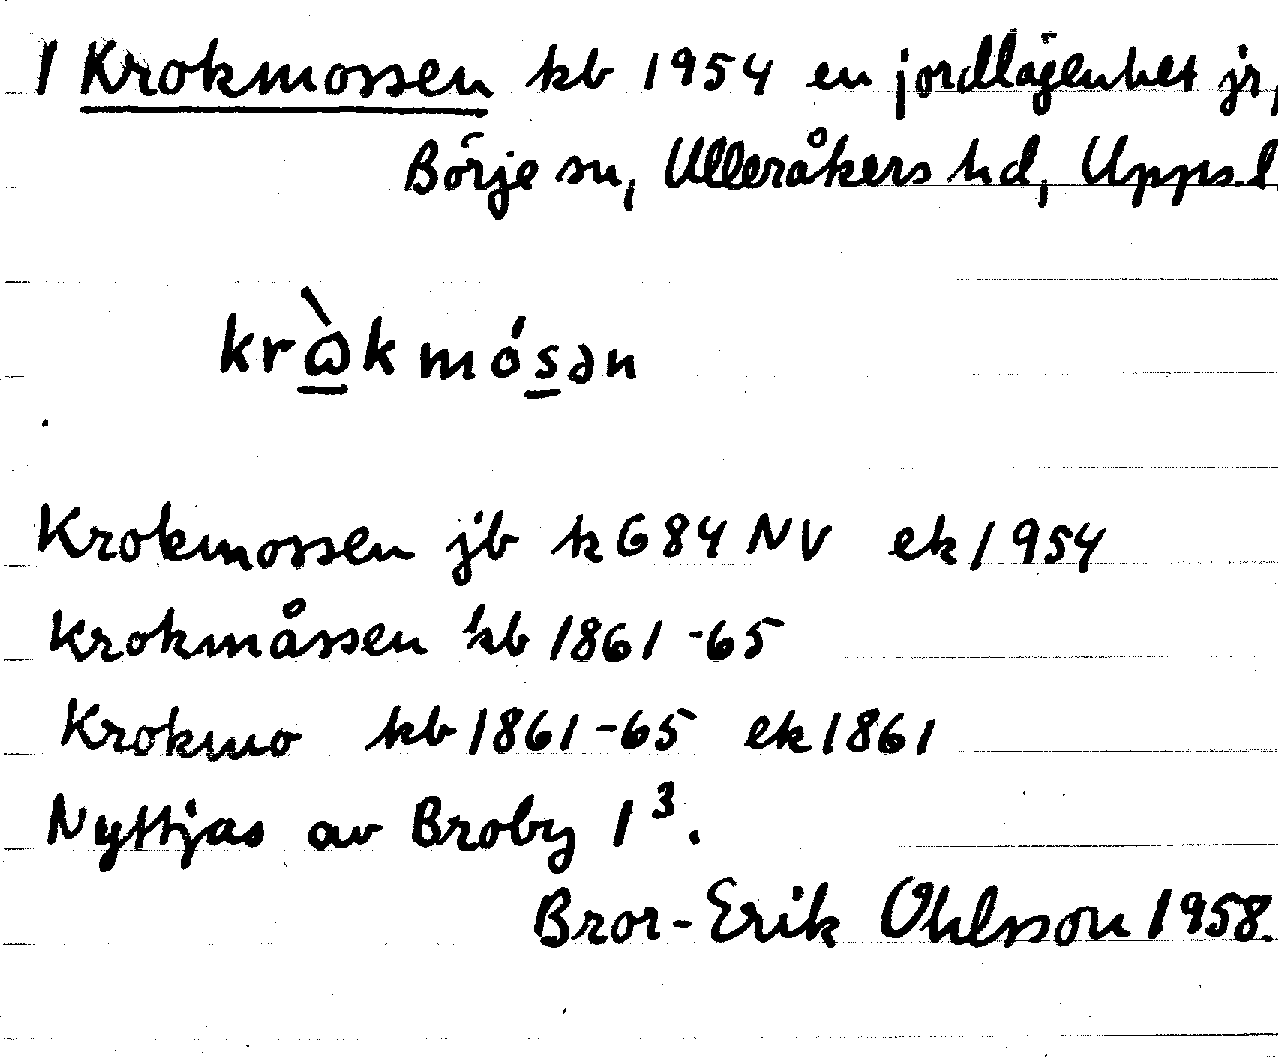 1 Krokmossen kb 1954 en jordlägenhet jr,
Börje sn, Ulleråkers hd, Upps. l
krὼkmósən
Krokmossen jb k G84 NV ek 1954
Krokmåssen kb 1861-65
Krokmo kb 1861-65 ek 1861
Nyttjas av Broby 1³.
Bror-Erik Ohlsson 1958.